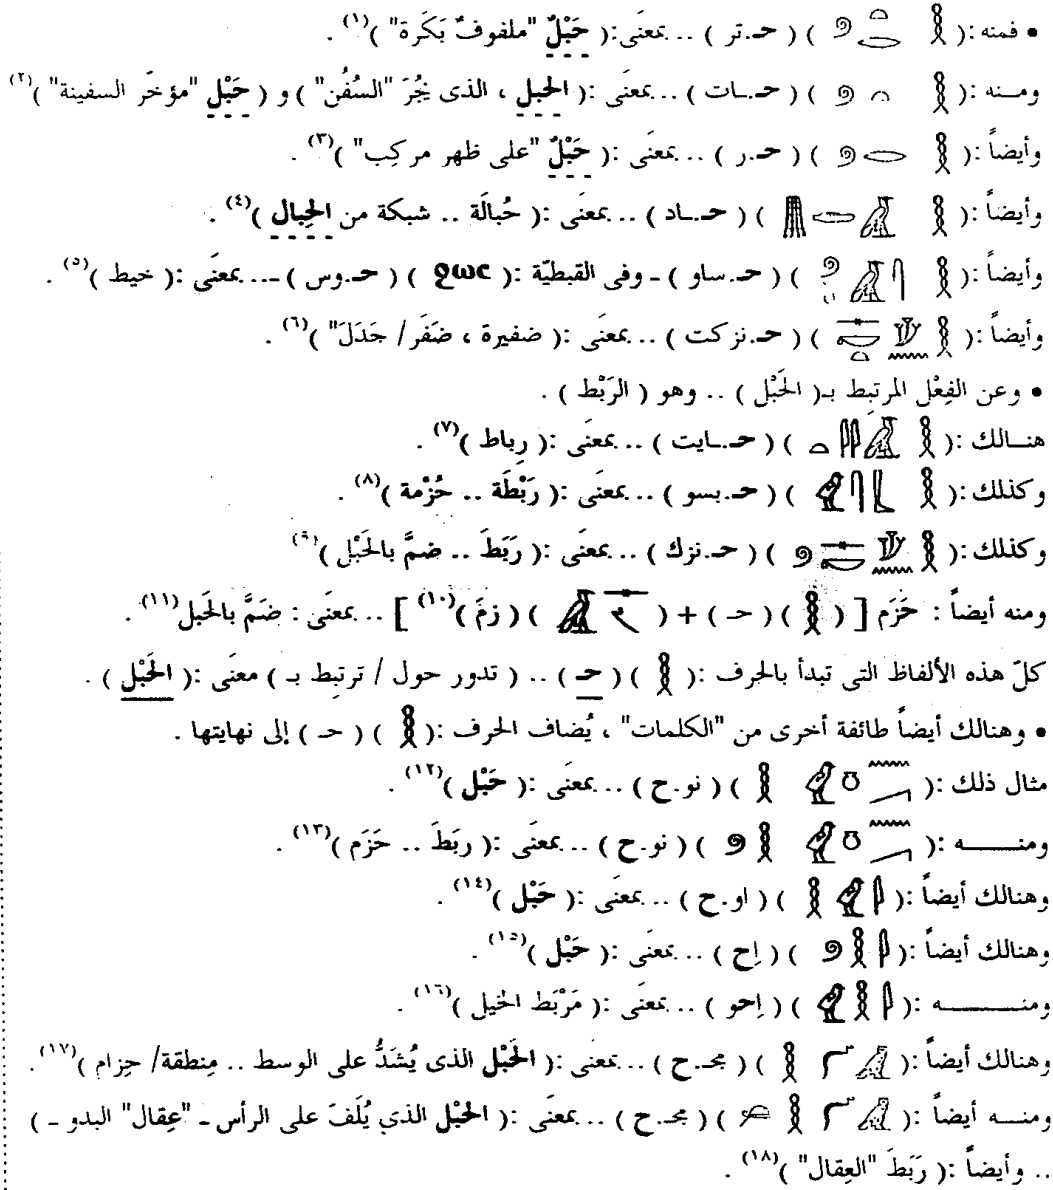 • فمنه :( 𓎛 𓏏 𓂋 𓍢 ) ( حـ.تر ) ... بمعنَى:( حَبْلٌ "ملفوفٌ بَكَرة" )(١) .
ومـنه :( 𓎛 𓏏 𓍢 ) ( حـ.ـات ) ... بمعنَى :( الحبل ، الذى يَجُرَ "السُفُن" ) و ( حَبْلِ "مؤخّر السفينة" )(٢)
وأيضاً :( 𓎛 𓂋 𓍢 ) ( حـ.ر ) ... بمعنَى :( حَبْلٌ "على ظهر مركِب" )(٣) .
وأيضاً :( 𓎛 𓄿 𓂋 ) ( حـ.ـاد ) ... بمعنَى :( حُبالَة .. شبكة من الحِبال )(٤) .
وأيضاً :( 𓎛 𓋴 𓄿 𓍢 ) ( حـ.ساو ) - وفى القبطيّة :( ϩⲱⲥ ) ( حـ.وس ) -... بمعنَى :( خيط )(٥) .
وأيضاً :( 𓎛 𓈖 𓊃 𓎡 𓏏 ) ( حـ.نزكت ) ... بمعنَى :( ضفيرة ، ضَفَر/ جَدَلَ" )(٦) .
• وعن الفِعْل المرتبط بـ( الحَبْل ) .. وهو ( الرَبْط ) .
هنــالك :( 𓎛 𓄿 𓇌 𓏏 ) ( حـ.ـايت ) ... بمعنَى :( رِباط )(٧) .
وكذلك :( 𓎛 𓃀 𓋴 𓅱 ) ( حـ.بسو ) ... بمعنَى :( رَبْطَة .. حُزْمة )(٨) .
وكذلك :( 𓎛 𓈖 𓊃 𓎡 𓍢 ) ( حـ.نزك ) ... بمعنَى :( رَبَطَ .. ضمَّ بالحَبْل )(٩)
ومنه أيضاً : حَزَم [ ( 𓎛 ) ( حـ ) + ( 𓊃 𓅓 ) ( زمَ )(١٠) ] ... بمعنَى : ضَمَّ بالحَبل(١١) .
كلّ هذه الألفاظ التى تبدأ بالحرف :( 𓎛 ) ( حـ ) .. ( تدور حول / ترتبِط بـ ) معنَى :( الحَبْل ) .
• وهنالك أيضاً طائفة أخرى من "الكلمات" ، يُضاف الحرف :( 𓎛 ) ( حـ ) إلى نهايتها .
مثال ذلك :( 𓈖 𓏌 𓅱 𓎛 ) ( نو.ح ) ... بمعنَى :( حَبْل )(١٢) .
ومنــــه :( 𓈖 𓏌 𓅱 𓎛 𓍢 ) ( نو.ح ) ... بمعنَى :( ربَطَ .. حَزَم )(١٣) .
وهنالك أيضاً :( 𓇋 𓅱 𓎛 ) ( او.ح ) ... بمعنَى :( حَبْل )(١٤) .
وهنالك أيضاً :( 𓇋 𓎛 𓍢 ) ( اِح ) ... بمعنَى :( حَبْل )(١٥) .
ومنــــــه :( 𓇋 𓎛 𓅱 ) ( اِحو ) ... بمعنَى :( مَرْبَط الخيل )(١٦) .
وهنالك أيضاً :( 𓅓 𓎛 ) ( مجـ.ح ) ... بمعنَى :( الحَبْل الذى يُشَدُّ على الوسط .. مِنطقة/ حِزام )(١٧) .
ومنــه أيضاً :( 𓅓 𓎛 ) ( مجـ.ح ) ... بمعنَى :( الحَبْل الذي يُلَفّ على الرأس - "عِقال" البدو - )
.. وأيضاً :( رَبَطَ "العِقال" )(١٨) .